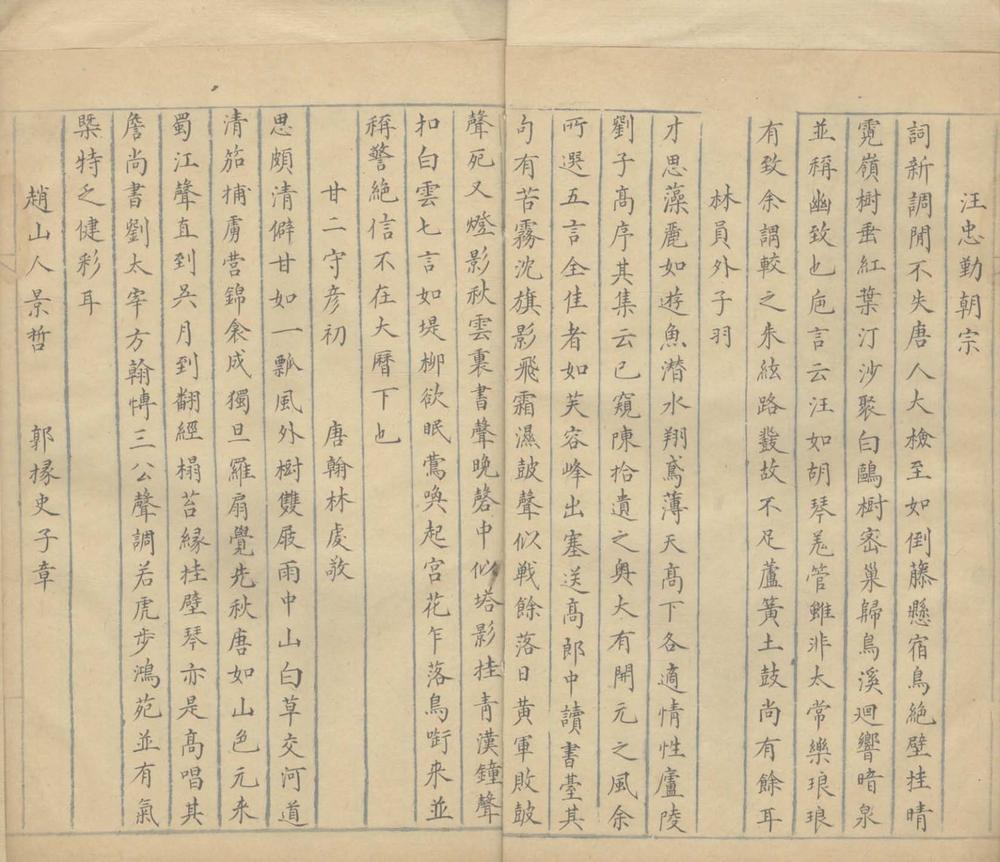 汪忠勤朝宗
詞新調閒不失唐人大檢至如倒藤懸宿鳥絶壁挂晴
霓嶺樹垂紅葉汀沙聚白鷗樹宻巢歸鳥溪迴響暗泉
並稱幽致也巵言云汪如胡琴羗管雖非太常樂琅琅
有致余謂較之朱絃路鼗故不足蘆簧土鼓尚有餘耳
林員外子羽
才思藻麗如遊魚潜水翔鳶薄天髙下各適情性廬陵
劉子髙序其集云已窺陳拾遺之奥大有開元之風余
所選五言全佳者如芙容峰出塞送髙郎中讀書䑓其
句有苦霧沈旗影飛霜濕鼓聲似戦餘落日黄軍敗鼓
聲死又燈影秋雲裏書聲晚磬中似塔影挂青漢鐘聲
扣白雲七言如堤柳欲眠鶯喚起宫花乍落鳥㗸来並
稱警絶信不在大曆下也
甘二守彦初 唐翰林處敬
思頗清僻甘如一瓢風外樹雙屐雨中山白草交河道
清笳捕虜营錦衾成獨旦羅扇覺先秋唐如山色元来
蜀江聲直到吳月到翻經榻苔縁挂壁琴亦是髙唱其
詹尚書劉太宰方翰慱三公聲調若虎步鴻苑並有氣
槩特乏健彩耳
趙山人景哲 郭掾史子章